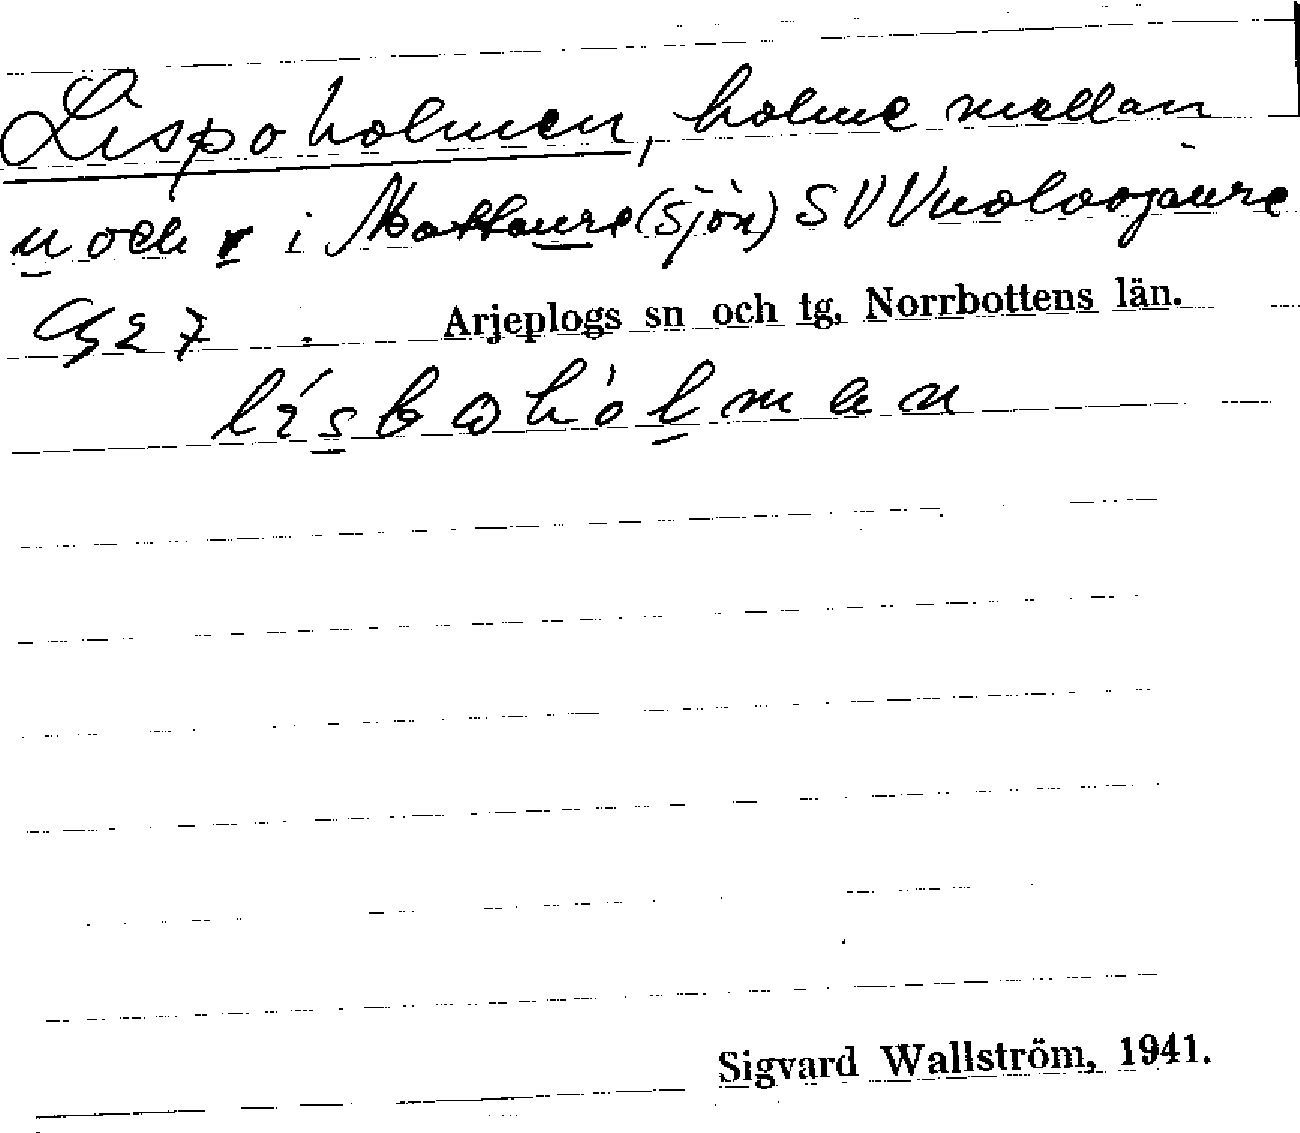 Lispoholmen, holme mellan
u och r i Mattaure (sjön) SV Vuoloojaure
G27 Arjeplogs sn och tg, Norrbottens län.
lísbohòlman
Sigvard Wallström, 1941.